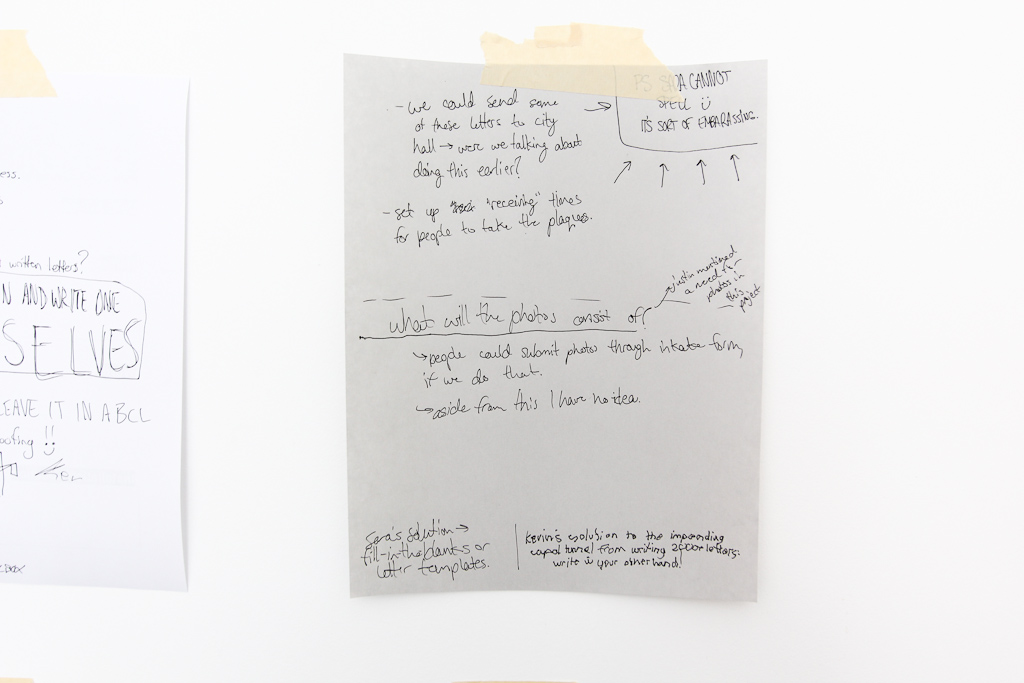 ess.
written letters?
N AND WRITE ONE
SELVES
LEAVE IT IN A BCL
- we could send some
of these letters to city
hall → were we talking about
doing this earlier?
- set up "receiving" times
for people to take the plaques.
PS CANNOT
SPELL
IT'S SORT OF EMBARASSING.
what will the photos consist of?
Justin mentioned
a need for
photos in
this
project
↳ people could submit photos through intake form,
if we do that.
↳ aside from this I have no idea.
Sera's solution →
fill-in-the blanks or
letter templates.
Kevin's solution to the impending
capal tunnel from writing 2000+ letters:
write w your other hand!